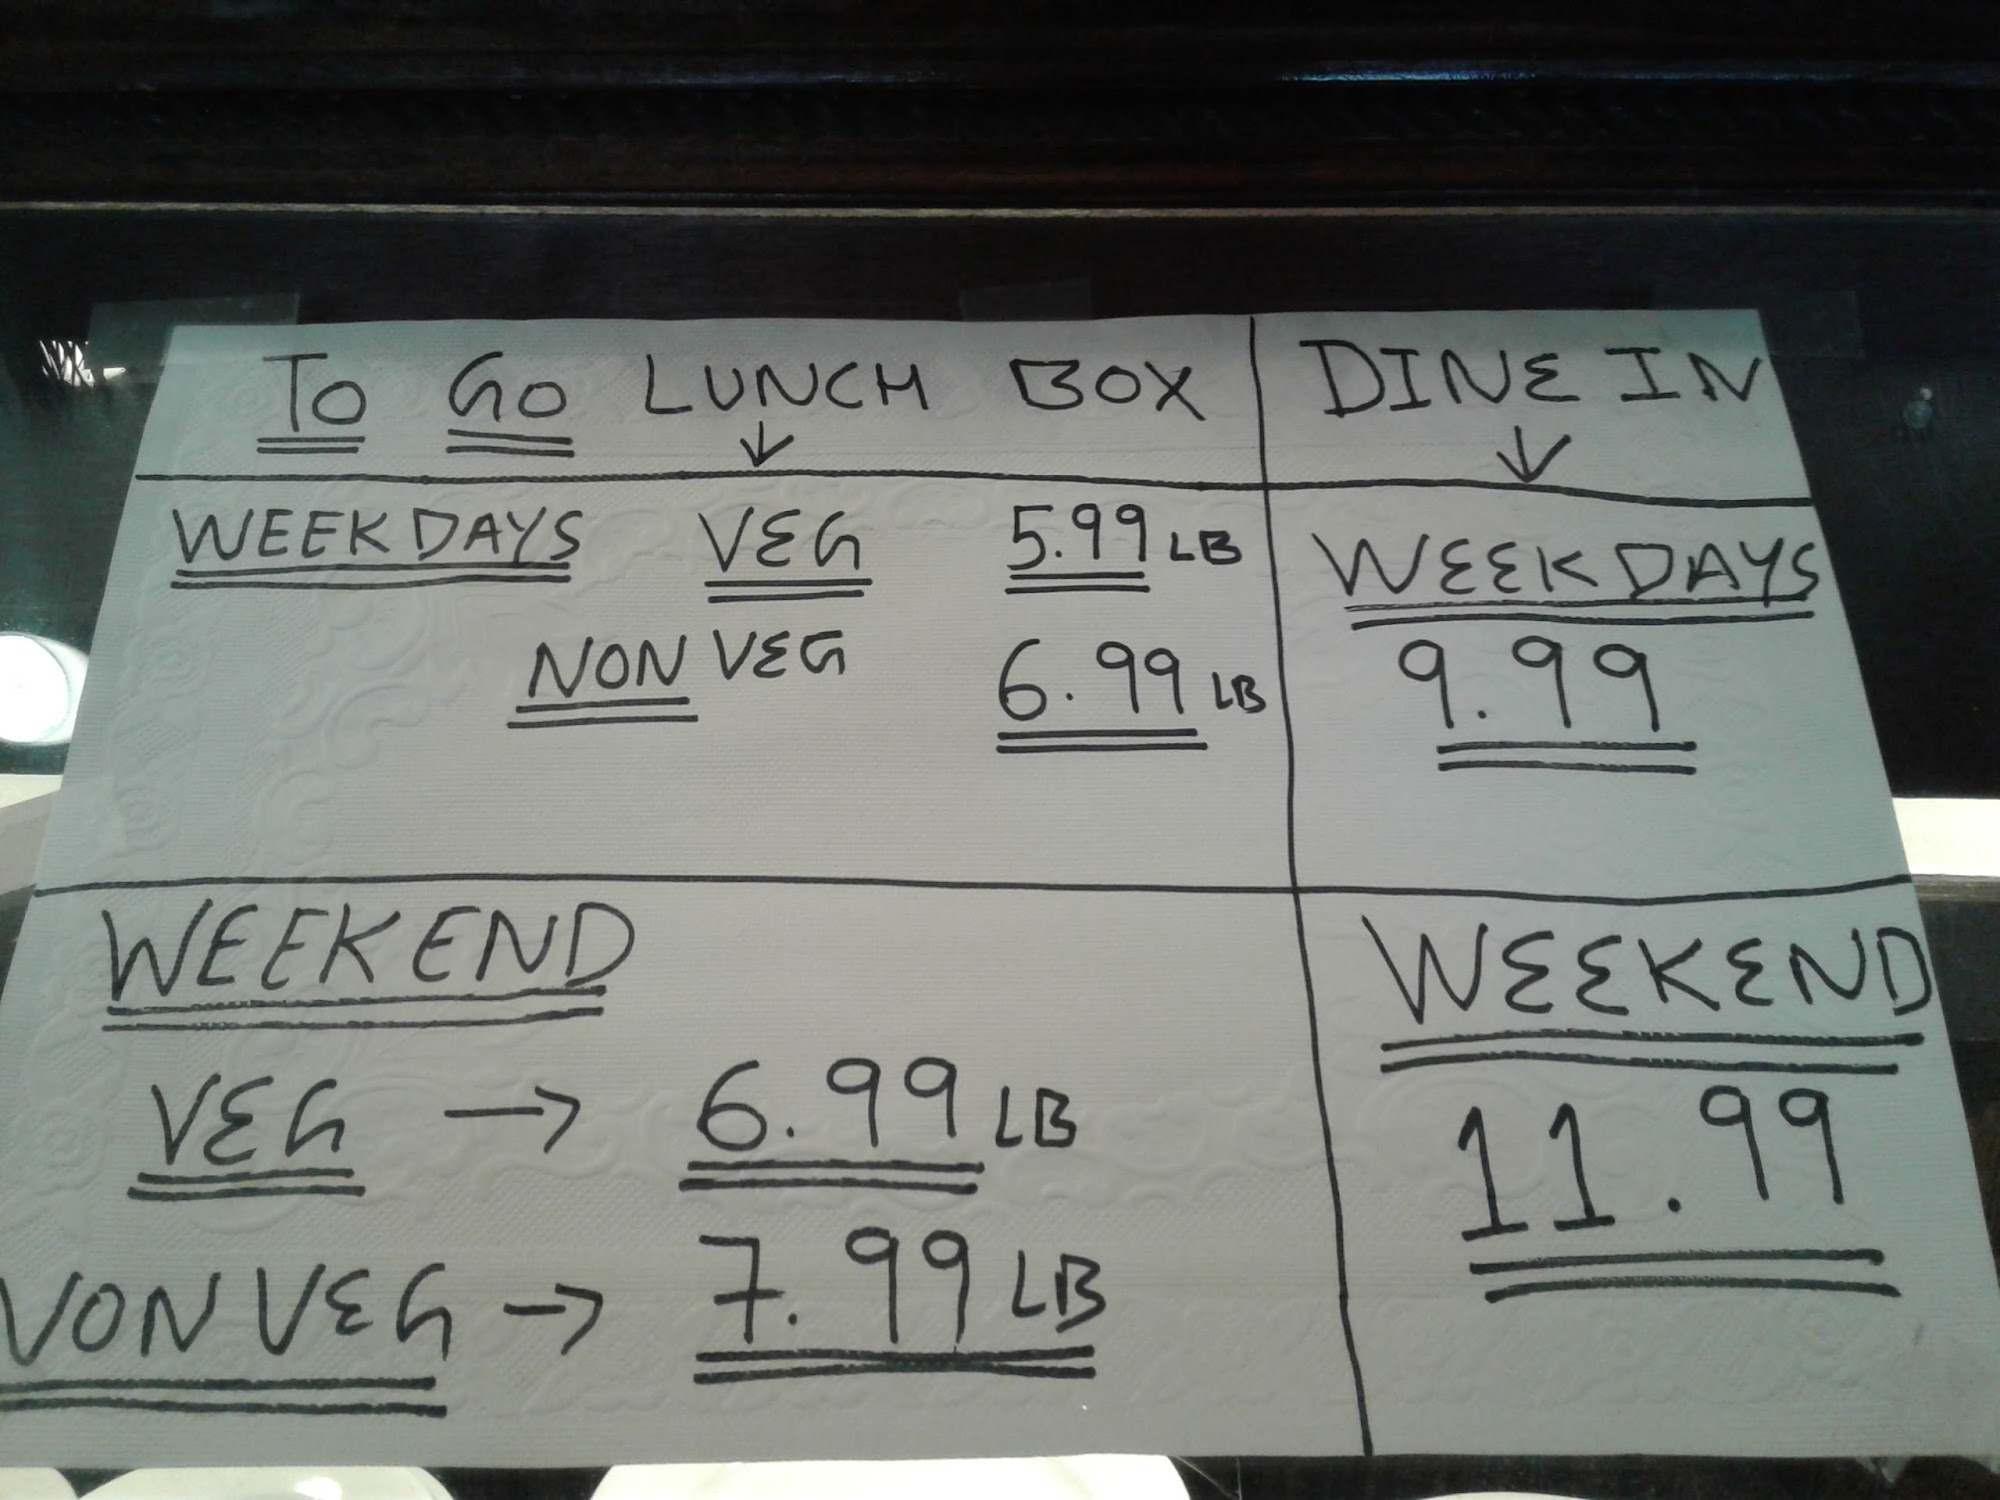 TO GO LUNCH BOX
↓
WEEKDAYS VEG 5.99 LB
NON VEG 6.99 LB
WEEKEND
VEG → 6.99 LB
NON VEG → 7.99 LB
DINE IN
↓
WEEKDAYS
9.99
WEEKEND
11.99